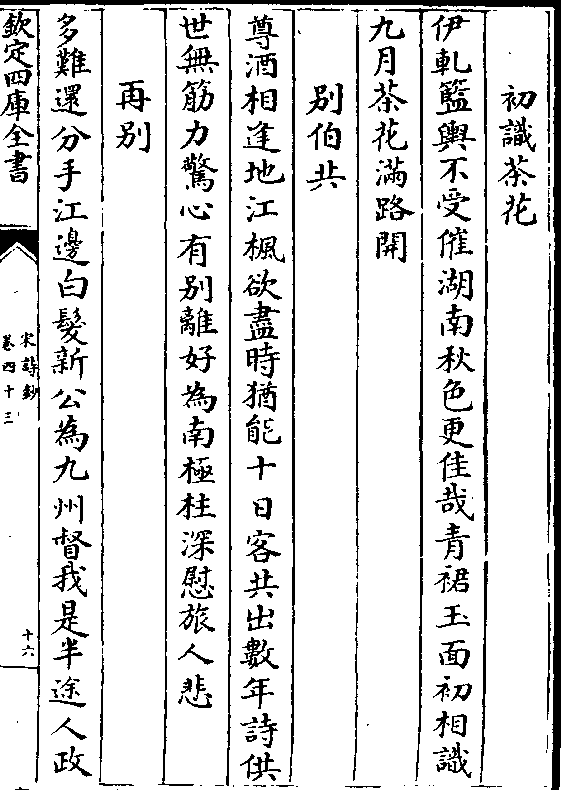 初識茶花
伊軋籃輿不受催湖南秋色更佳哉青裙玉面初相識
九月茶花滿路開
別伯共
尊酒相逢地江楓欲盡時猶能十日客共出數年詩供
世無筋力驚心有别離好為南極柱深慰旅人悲
再别
多難還分手江邊白髮新公為九州督我是半途人政
欽定四庫全書
宋詩鈔
卷四十三
十六